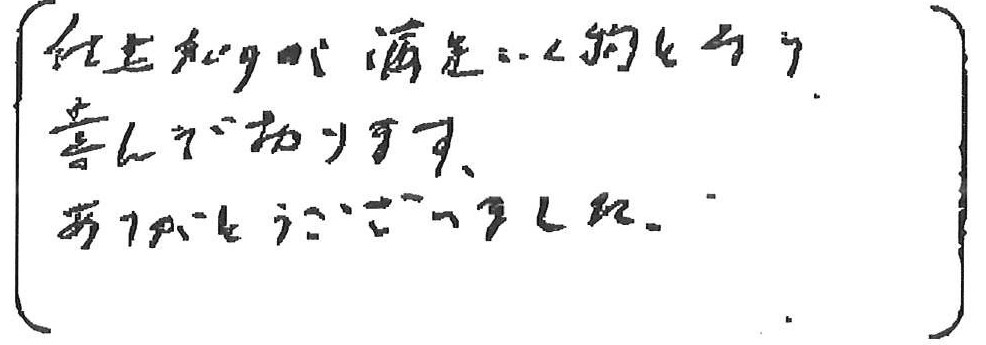 仕上がりが満足いく物となり
喜んでおります、
ありがとうございました。